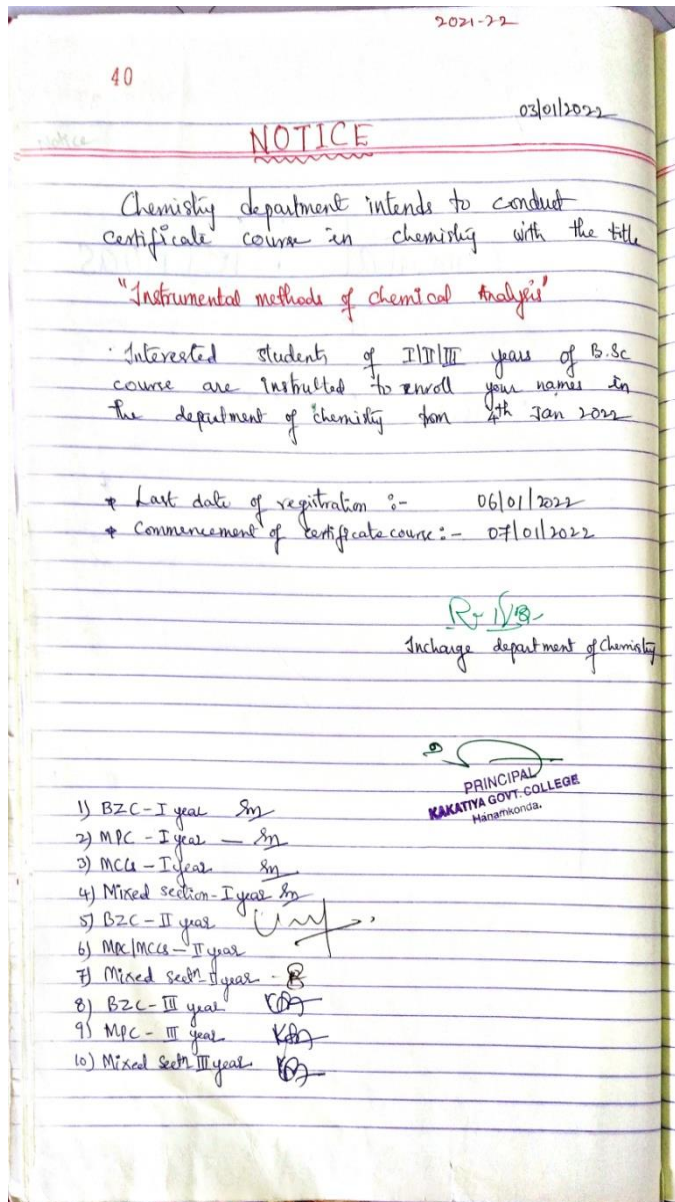 2021-22
40
03/01/2022
NOTICE
Chemistry department intends to conduct
certificate course in chemistry with the title
"Instrumental methods of chemical Analysis"
Interested students of I/II/III years of B.Sc
course are instructed to enroll your names in
the department of chemistry from 4th Jan 2022
* Last date of registration :- 06/01/2022
* Commencement of certificate course :- 07/01/2022
Incharge department of Chemistry
PRINCIPAL
KAKATIYA GOVT. COLLEGE
Hanamkonda.
1) BZC - I year
2) MPC - I year -
3) MCCs - I year
4) Mixed section - I year
5) BZC - II year
6) MPC/MCCs - II year
7) Mixed sectn - II year -
8) BZC - III year
9) MPC - III year
10) Mixed sectn III year